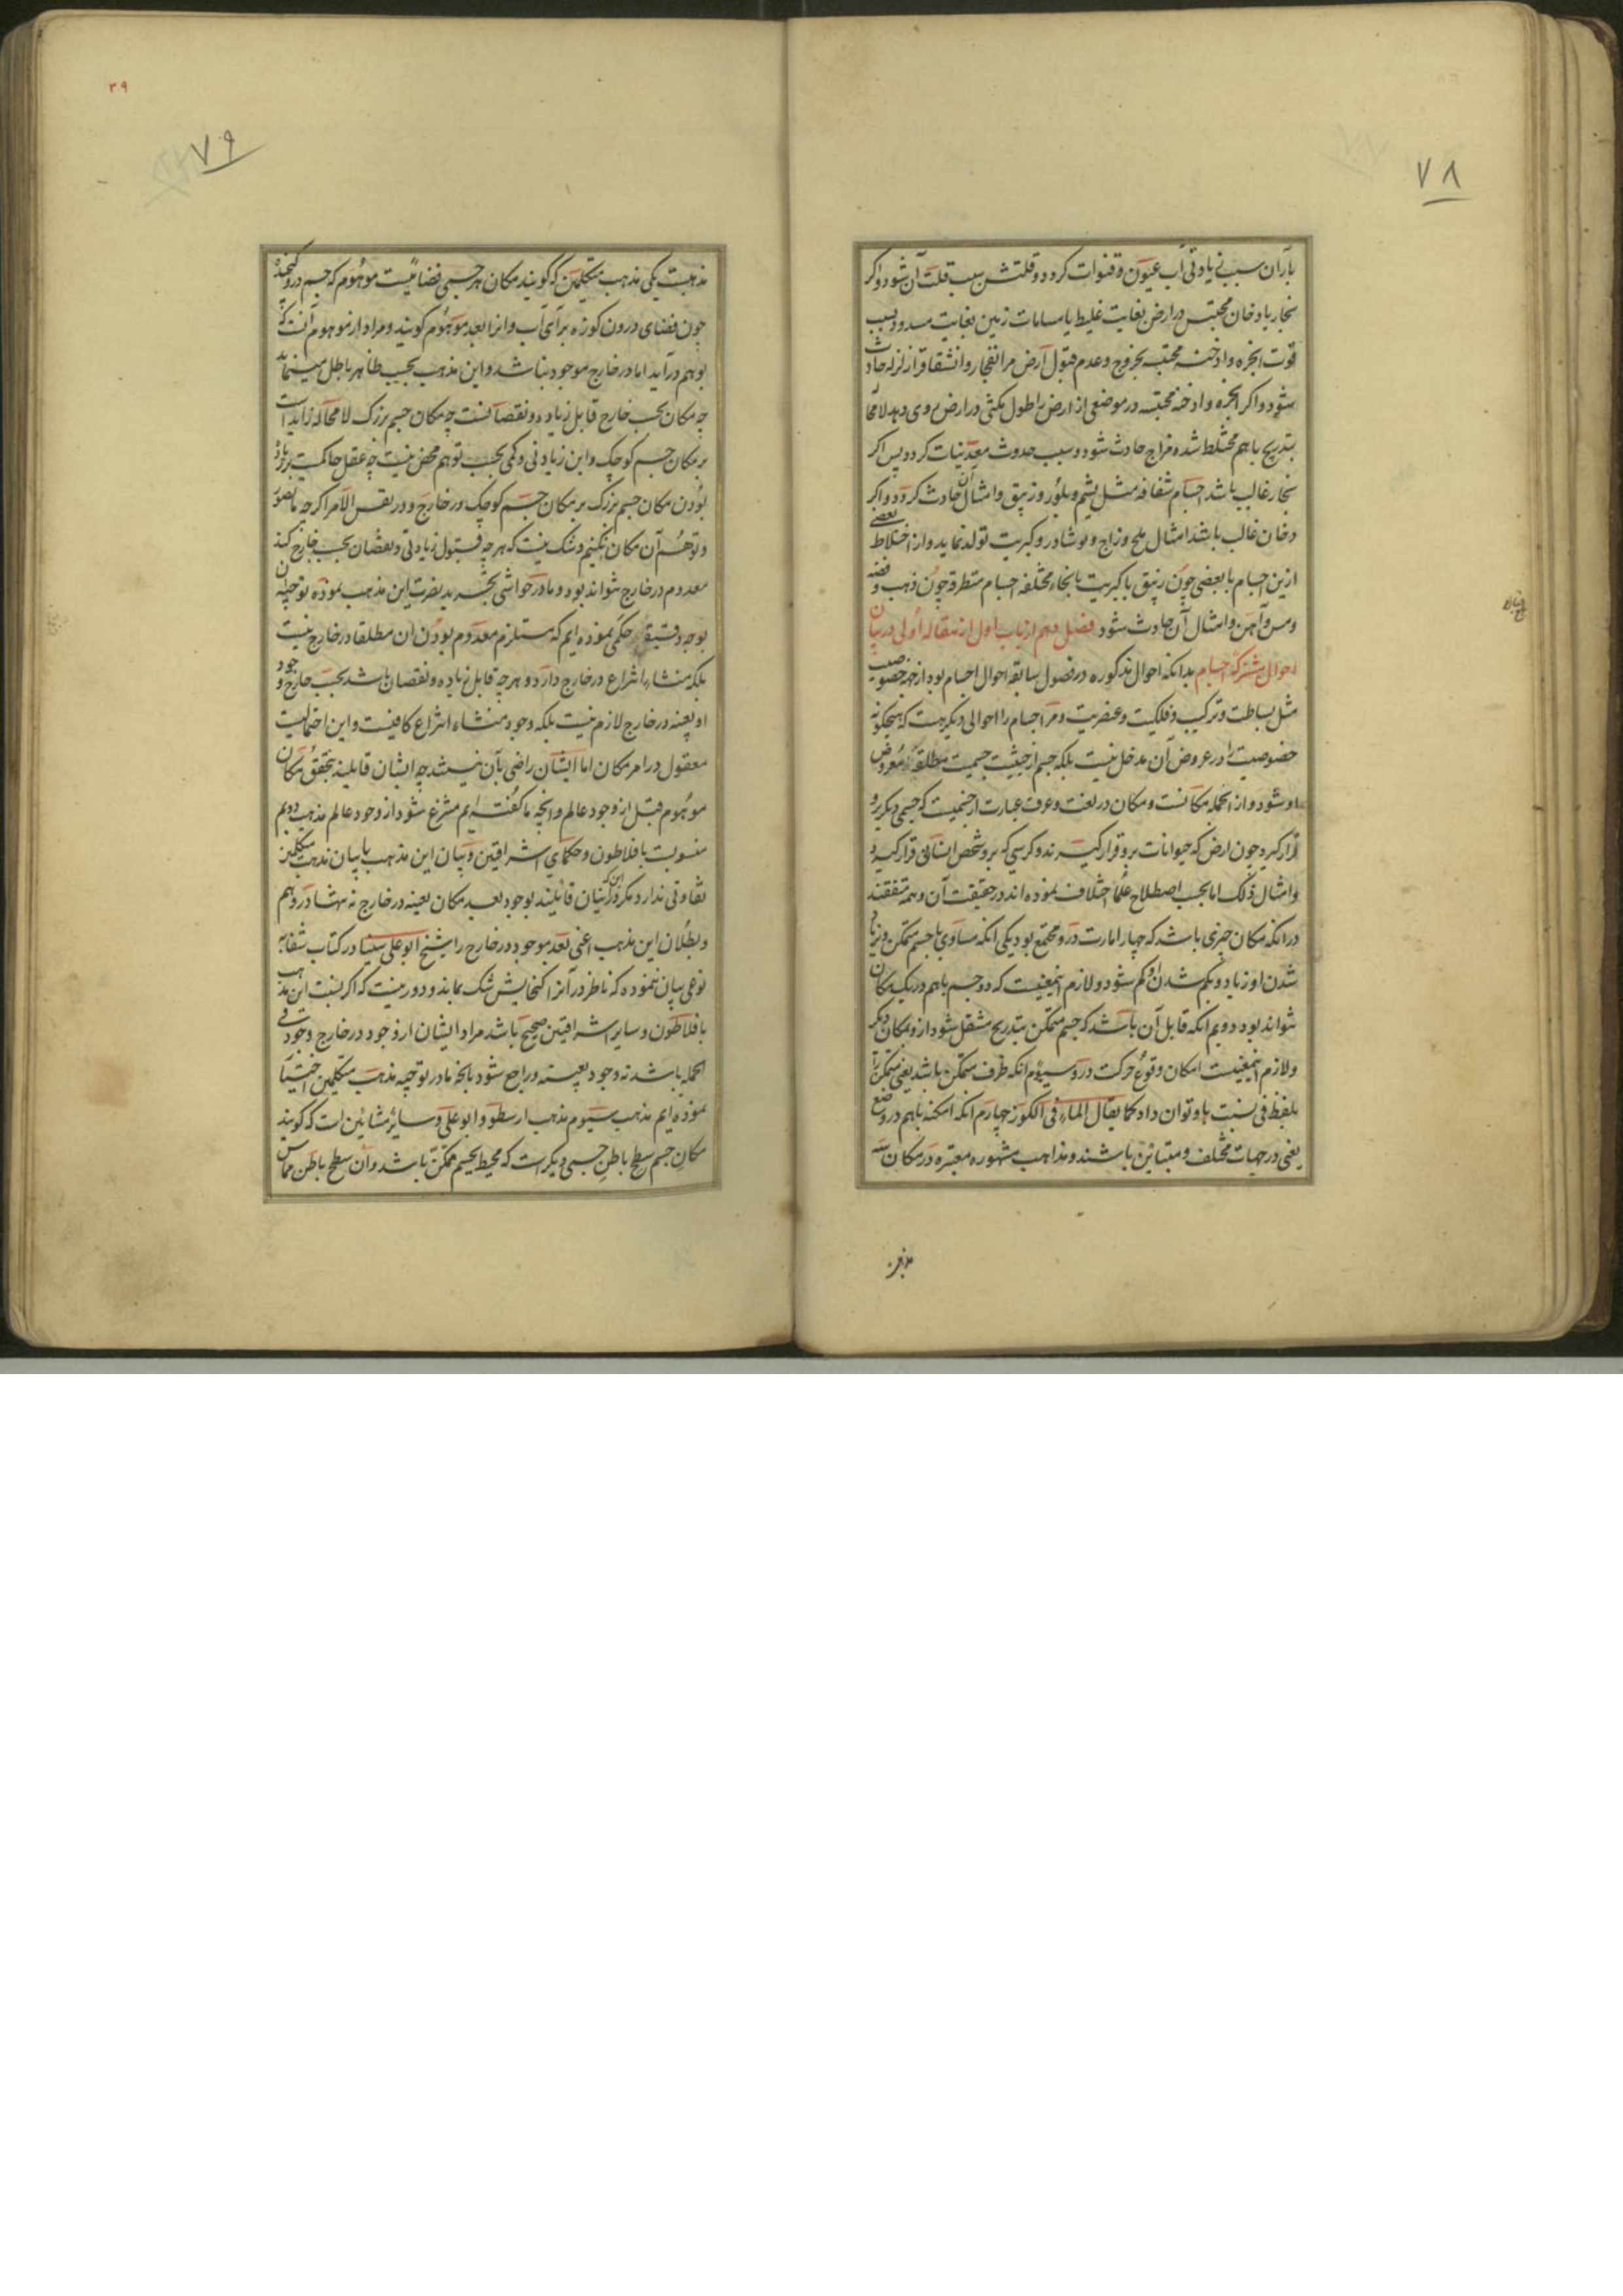 ۷۸
باران سبب زیادتی آب عیون و قنوات کردد و قلتش سبب قلت آن شود و اکر
بخار یا دخان محتبس در ارض بغایت غلیظ یا مسامات زمین بغایت مسدود بسبب
قوت ابخره و ادخنه محتبسه بخروج و عدم قبول ارض مر انفجار و انشقاق را زلزله حادث
شود و اکر ابخره و ادخنه محتبسه در موضعی از ارض را طول مکثی در ارض روی دهد لامحا
بتدریج باهم مختلط شده مزاج حادث شود و سبب حدوث معدنیات کردد پس اکر
بخار غالب باشد اجسام شفافه مثل یشم و بلور و زیبق و امثال آن حادث کردد و اکر
دخان غالب باشد امثال ملح و زاج و نوشادر و کبریت تولد نماید و از اختلاط بعضی
ازین اجسام با بعضی چون زیبق با کبریت بانحاء مختلفه اجسام متطرقه چون ذهب و فضه
و مس و آهن و امثال آن حادث شود فصل دهم از باب اول از مقاله اولی در بیان
احوال مشترکه اجسام بدانکه احوال مذکوره در فصول سابقه احوال اجسام بود از جهة خصوصیت
مثل بساطت و ترکیب و فلکیت و عنصریت و مر اجسام را احوالی دیکر هست که هیچکونه
خصوصیت را در عروض آن مدخل نیست بلکه جسم از حیثیت جسمیت مطلقه معروض
او شود و از انجمله مکانست و مکان در لغت و عرف عبارت از جسمیست که جسمی دیکر برو
قرار کیرد چون ارض که حیوانات برو قرار کیرند و کرسی که برو شخص انسانی قرار کیرد
و امثال ذلک اما بحسب اصطلاح علما اختلاف نموده اند در حقیقت آن و همه متفقند
در انکه مکان چیزی باشد که چهار امارت درو مجتمع بود یکی انکه مساوی با جسم متمکن و بزیاد
شدن او زیاد و بکم شدن او کم شود و لازم اینمعنیست که دو جسم باهم در یک مکان
نتواند بود دویم انکه قابل آن باشد که جسم متمکن بتدریج منتقل شود ازو بمکان دیکر
و لازم اینمعنیست امکان وقوع حرکت درو سیوم انکه ظرف متمکن باشد یعنی متمکن را
بلفظ فی نسبت باو توان داد کما یقال الماء فی الکوز چهارم انکه امکنه باهم در وضع
یعنی در جهات مختلف و متباین باشند و مذاهب مشهوره معتبره در مکان سه
۳۹
۷۹
مذهبست یکی مذهب متکلمین که کویند مکان هر جسمی فضائیست موهوم که جسم درو کنجیده
چون فضای درون کوزه برای آب و انرا بعد موهوم کویند و مراد از موهوم آنست که
بوهم درآید اما در خارج موجود نباشد و این مذهب بحسب ظاهر باطل مینماید
چه مکان بحسب خارج قابل زیاده و نقصانست چه مکان جسم بزرک لامحاله زاید است
بر مکان جسم کوچک و این زیادتی و کمی بحسب توهم محض نیست چه عقل حاکمست بزیاد
بودن مکان جسم بزرک بر مکان جسم کوچک در خارج و در نفس الامر اکرچه ما تصور
و توهم آن مکان نکنیم و شک نیست که هرچه قبول زیادتی و نقصان بحسب خارج کند
معدوم در خارج نتواند بود و ما در حواشی تجرید نصرت این مذهب نموده توجیه ان
بوجه دقیق حکمی نموده ایم که مستلزم معدوم بودن ان مطلقا در خارج نیست
بلکه منشاء انتزاع در خارج دارد و هرچه قابل زیاده و نقصان باشد بحسب خارج وجود
او بعینه در خارج لازم نیست بلکه وجود منشاء انتزاع کافیست و این احتمالیست
معقول در امر مکان اما ایشان راضی بآن نیستند چه ایشان قایلند بتحقق مکان
موهوم قبل از وجود عالم و انچه ما کفته ایم منتزع شود از وجود عالم مذهب دویم
منسوبست بافلاطون و حکمای اشراقیین و بیان این مذهب با بیان مذهب متکلمین
تفاوتی ندارد مکر در این که اینان قائلند بوجود بعد مکان بعینه در خارج نه تنها در وهم
و بطلان این مذهب اعنی بعد موجود در خارج را شیخ ابو علی سینا در کتاب شفا به
نوعی بیان نموده که ناظر در آنرا کنجایش شک نماند و دور نیست که اکر نسبت این مذهب
بافلاطون و سایر اشراقیین صحیح باشد مراد ایشان از وجود در خارج وجود فی
الجمله باشد نه وجود بعینه و راجع شود بانچه ما در توجیه مذهب متکلمین اختیار
نموده ایم مذهب سیوم مذهب ارسطو و ابو علی و سایر مشائین است که کویند
مکان جسم سطح باطن جسمی دیکر است که محیط بجسم متمکن باشد و ان سطح باطن مماس